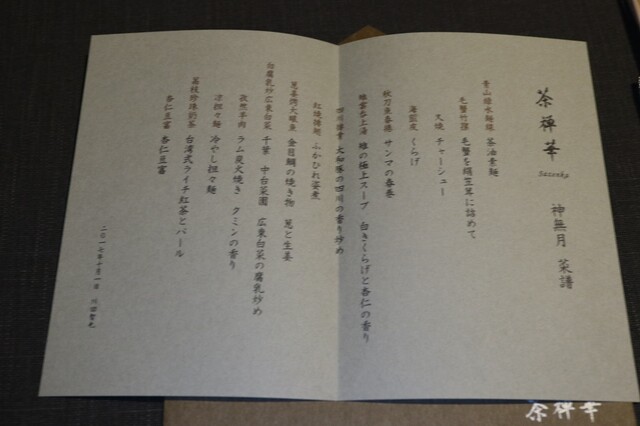 茶禅華
Sazenka
神無月 菜譜
青山緑水麺線 茶油素麺
毛蟹竹蓀 毛蟹を絹笠茸に詰めて
叉焼 チャーシュー
海蜇皮 くらげ
秋刀魚春捲 サンマの春巻
雉雲呑上湯 雉の極上スープ 白きくらげと杏仁の香り
四川 大和豚の四川の香り炒め
紅焼排翅 ふかひれ姿煮
葱姜湾大眼魚 金目鯛の焼き物 葱と生姜
白腐乳炒広東白菜 千葉 中台菜園 広東白菜の腐乳炒め
孜然羊肉 ラム炭火焼き クミンの香り
涼担々麺 冷やし担々麺
茘枝珍珠奶茶 台湾式ライチ紅茶とパール
杏仁豆富 杏仁豆富
二〇一七年十月一日 川田智也
茶禅華